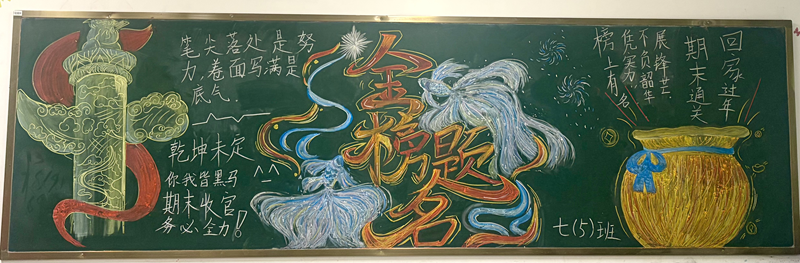 笔尖落处是努
力,卷面写满是
底气.
乾坤未定
你我皆黑马
期末收官
务必全力!
金榜题名
回家过年
期末通关
展锋芒
不负韶华
凭实力
榜上有名
七(5)班